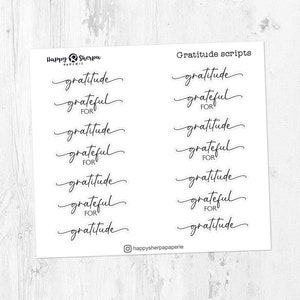 Happy Sherpa
PAPERIE
Gratitude scripts
gratitude
gratitude
grateful
FOR
grateful
FOR
gratitude
gratitude
grateful
FOR
grateful
FOR
gratitude
gratitude
grateful
FOR
grateful
FOR
gratitude
gratitude
happysherpapaperie